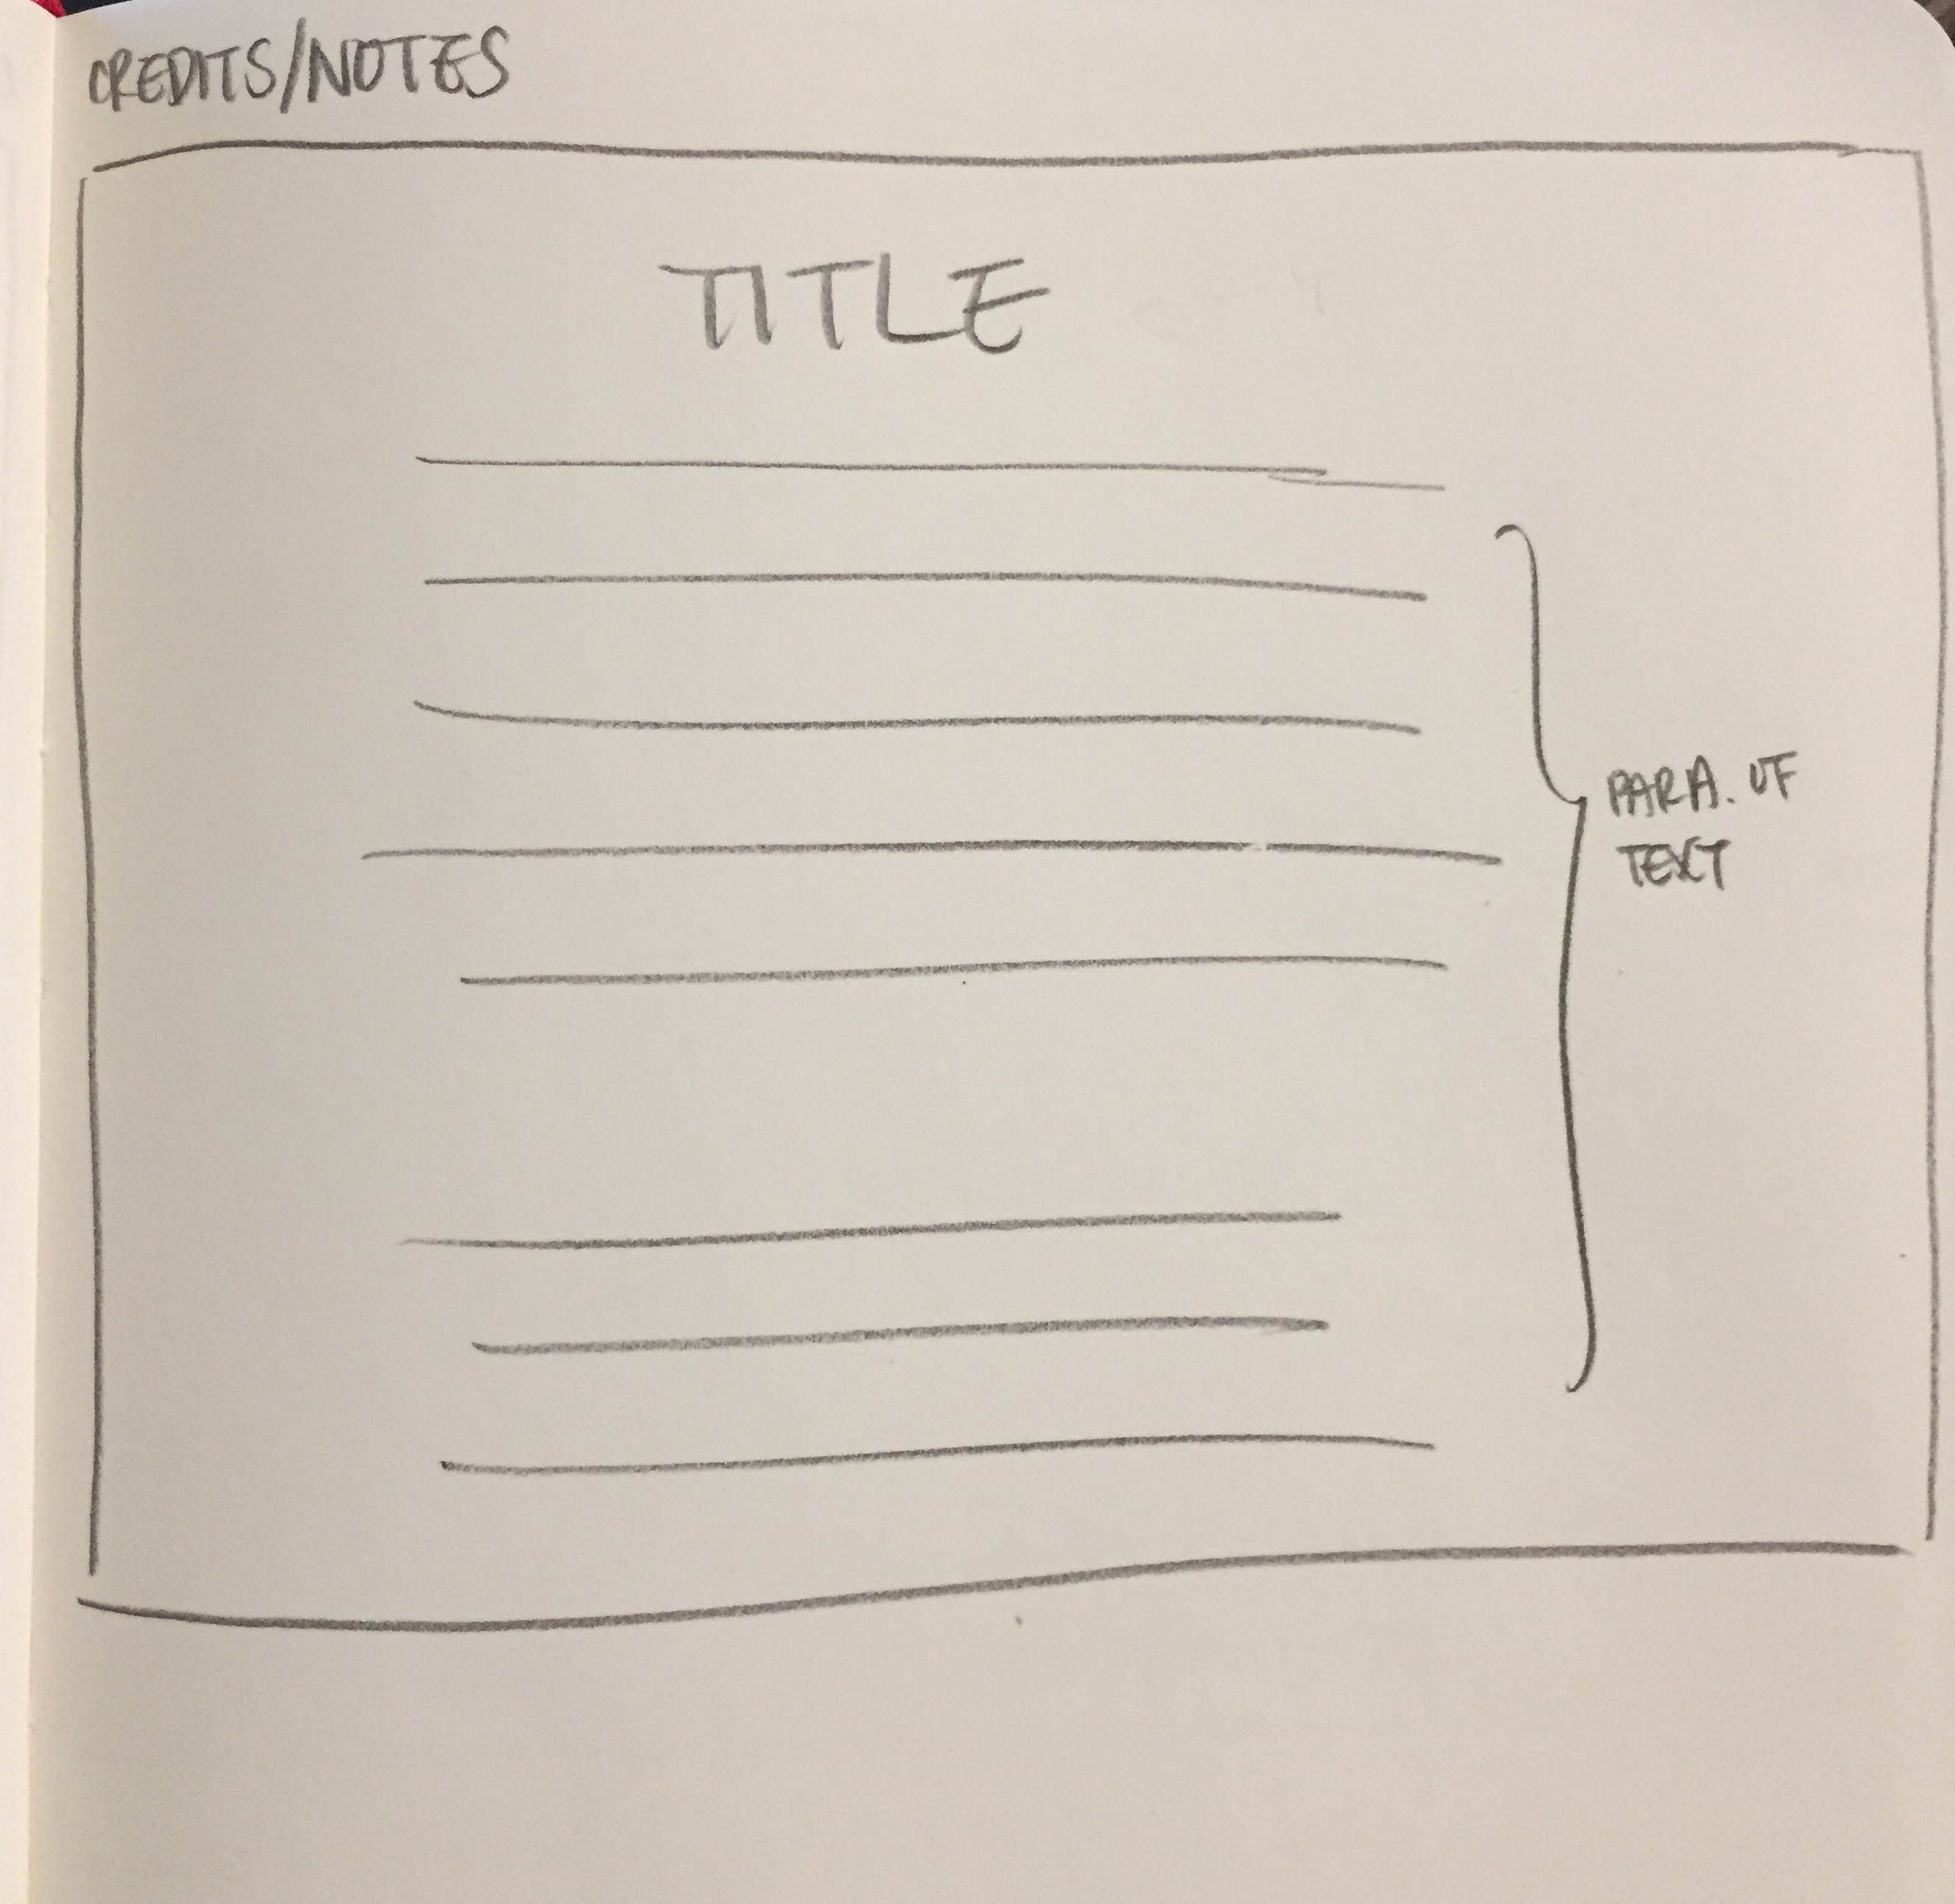 CREDITS/NOTES
TITLE
PARA. OF
TEXT